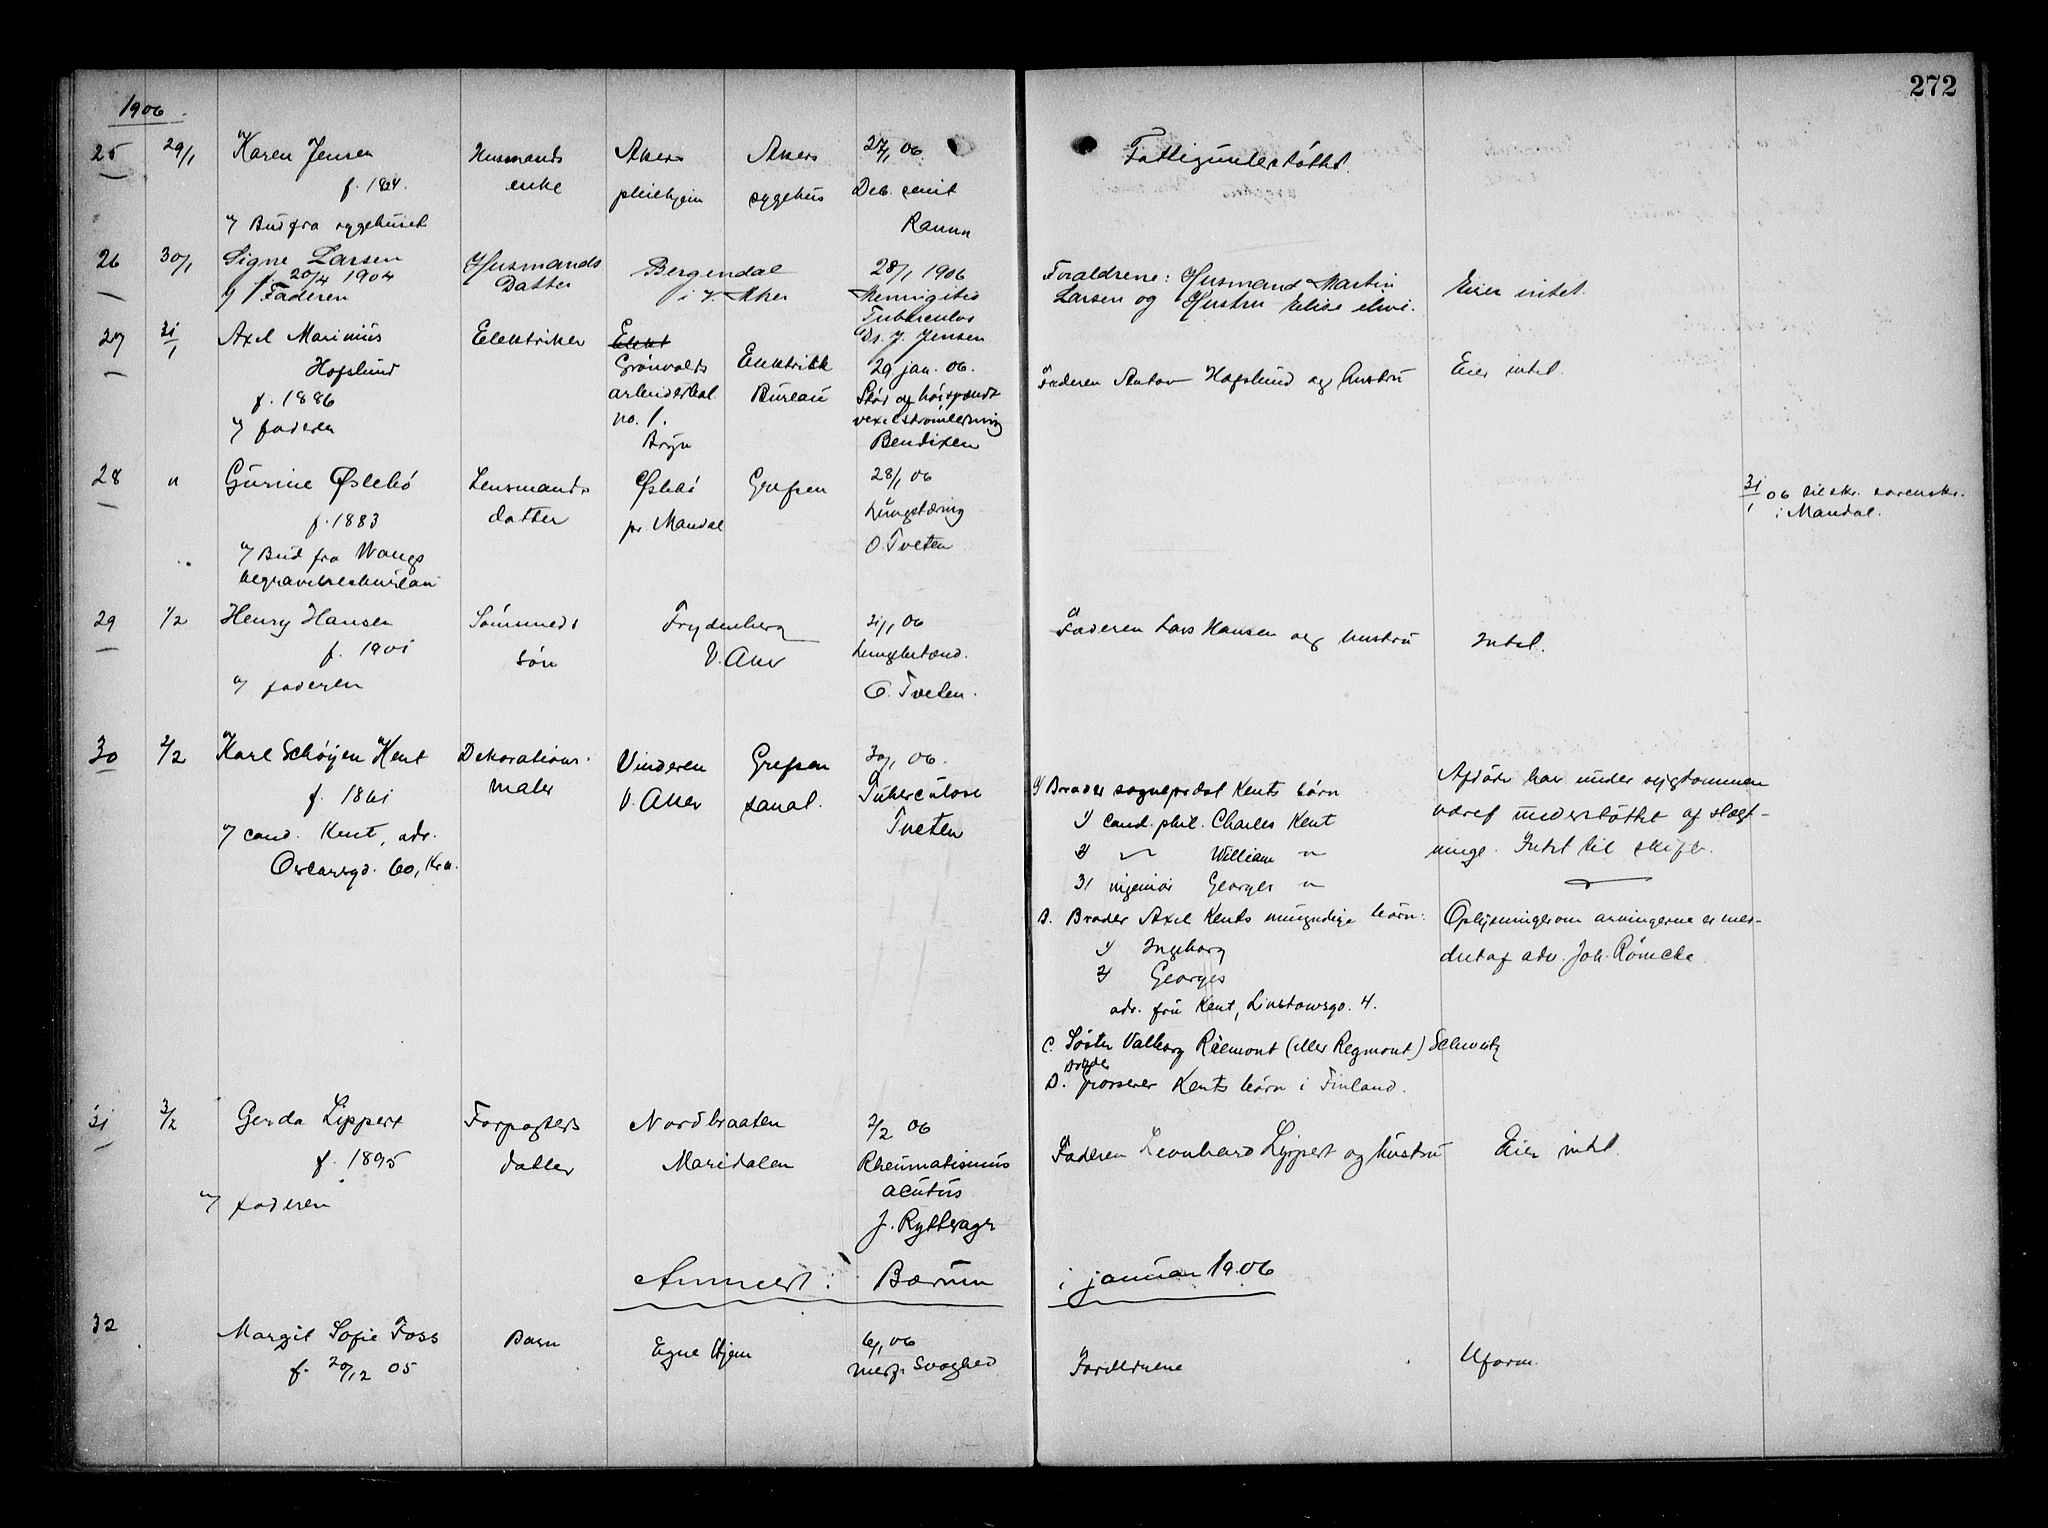 272
1906
25 29/1 Karen Jensen Husmands Akers Akers 27/1 06. Fattigunderstøttet.
f. 1824. enke pleiehjem sygehus Deb. senil
v/ Bud fra sygehuset
26 30/1 Signe Larsen Husmands Bergendal 28/1 1906 Forældrene: Husmand Martin Eier intet.
f. 20/4 1904 Datter i V. Aker Meningitis Larsen og Hustru Elise
v/ Faderen Tuberculos
27 31/1 Axel Marinius Elektriker Elekt Dr. J. Jensen
Hofslund Grønvolds Elektrisk 29 jan. 06. Faderen Anton Hofslund og hustru Eier intet.
f. 1886 arbeiderbol. Bureau Stød af høispændt
v/ faderen no. 1. vexelstrømledning
Bryn Bendixen
28 " Gurine Øslebö Lensmands Øslebö Grefsen 28/1 06 31/1 06 tilskr. sorenskr.
f. 1883 datter pr Mandal Lungetæring i Mandal.
v/ Bud fra Wangs O. Tveten
begravelsesbureau
29 1/2 Henry Hansen Sömmeds Frydenberg 31/1 06 Faderen Lars Hansen og hustru Intet.
f. 1901 sön V. Aker Lungbetænd.
v/ faderen O. Tveten.
30 2/2 Karl Schöyen Kent Dekorations- Vinderen Grefsen 30/1 06.
f. 1861 maler V. Aker sanat. Tuberculose
v/ cand. Kent, adr. Tveten
Oscarsgd. 60, Kra.
Broder sogneprest Kents børn
1) Cand. phil. Charles Kent
2) " William "
3) ingeniør Georges "
B. Broder Axel Kents umyndige børn:
1) Ingeborg
2) Georges
adr. fru Kent, Linstowsgd. 4.
C. Søster Valborg Réemont (eller Regmont) Schweitz
D. Broder Grosserer Kents børn i Finland.
Afdöde har under sygdommen
været understöttet af slægt-
ninge. Intet til skifte.
Oplysninger om arvingerne er med-
delt af adv. Joh. Römcke
31 3/2 Gerda Lippert Forpagters Nordbraaten 2/2 06 Faderen Leonhard Lippert og hustru Eier intet.
f. 1895 datter Maridalen Rheumatismus
v/ faderen acutus
J. Ryttervager
Anmeldt i Bærum i januar 1906
32 Margit Sofie Foss Barn Egne Hjem 6/1 06 Forældrene Uform.
f. 20/12 05 medf. Svaghed